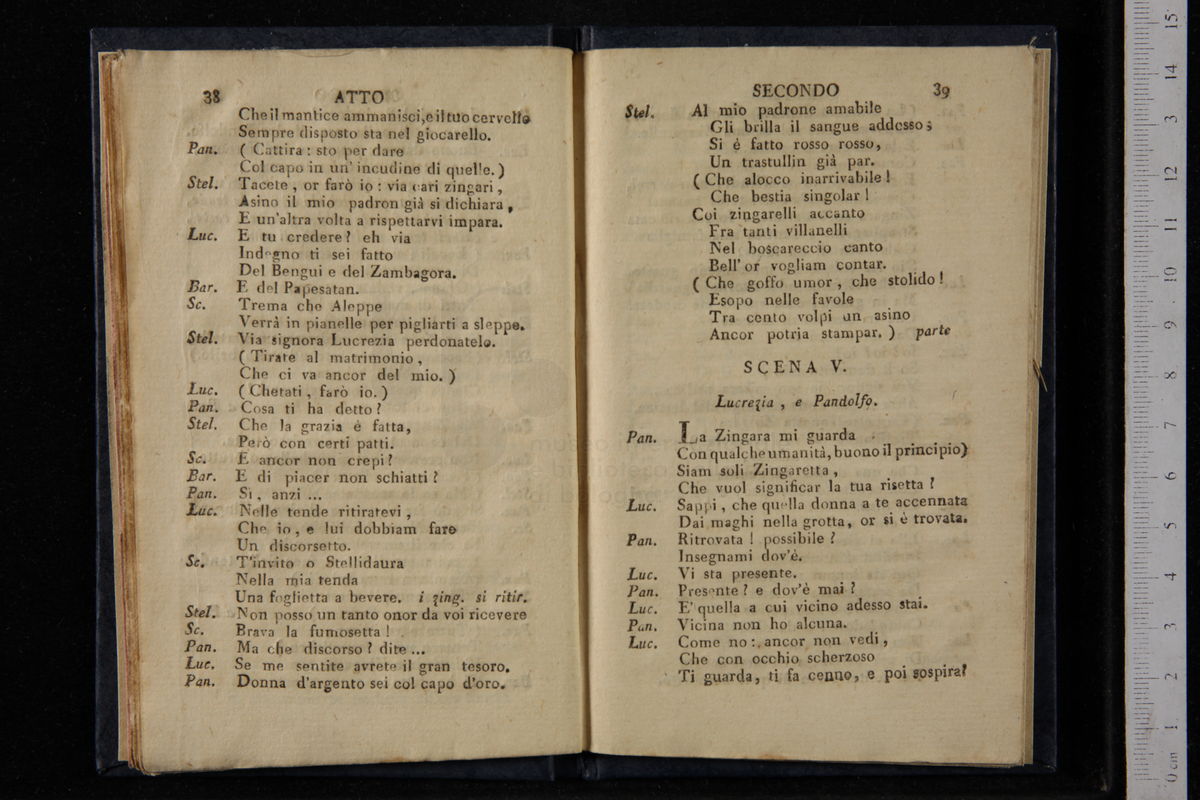 38 ATTO
Che il mantice ammanisci,e il tuo cervello
Sempre disposto sta nel giocarello.
Pan. ( Cattira : sto per dare
Col capo in un' incudine di quelle. )
Stel. Tacete , or farò io : via cari zingari ,
Asino il mio padron già si dichiara ,
E un'altra volta a rispettarvi impara.
Luc. E tu credere ? eh via
Indegno ti sei fatto
Del Bengui e del Zambagora.
Bar. E del Papesatan.
Sc. Trema che Aleppe
Verrà in pianelle per pigliarti a sleppe.
Stel. Via signora Lucrezia perdonatelo.
( Tirate al matrimonio ,
Che ci va ancor del mio. )
Luc. ( Chetati , farò io. )
Pan. Cosa ti ha detto ?
Stel. Che la grazia é fatta,
Però con certi patti.
Sc. E ancor non crepi ?
Bar. E di piacer non schiatti ?
Pan. Si , anzi ...
Luc. Nelle tende ritiratevi ,
Che io , e lui dobbiam fare
Un discorsetto.
Sc. T'invito o Stellidaura
Nella mia tenda
Una foglietta a bevere. i zing. si ritir.
Stel. Non posso un tanto onor da voi ricevere
Sc. Brava la fumosetta !
Pan. Ma che discorso ? dite ...
Luc. Se me sentite avrete il gran tesoro.
Pan. Donna d'argento sei col capo d'oro.
SECONDO 39
Stel. Al mio padrone amabile
Gli brilla il sangue addosso ;
Si é fatto rosso rosso,
Un trastullin già par.
( Che alocco inarrivabile !
Che bestia singolar !
Coi zingarelli accanto
Fra tanti villanelli
Nel boscareccio canto
Bell' or vogliam contar.
( Che goffo umor , che stolido !
Esopo nelle favole
Tra cento volpi un asino
Ancor potria stampar. ) parte
SCENA V.
Lucrezia , e Pandolfo.
Pan. La Zingara mi guarda
Con qualche umanità, buono il principio)
Siam soli Zingaretta ,
Che vuol significar la tua risetta ?
Luc. Sappi , che quella donna a te accennata
Dai maghi nella grotta, or si è trovata.
Pan. Ritrovata ! possibile ?
Insegnami dov'é.
Luc. Vi sta presente.
Pan. Presente ? e dov'è mai ?
Luc. E' quella a cui vicino adesso stai.
Pan. Vicina non ho alcuna.
Luc. Come no : ancor non vedi ,
Che con occhio scherzoso
Ti guarda, ti fa cenno, e poi sospira?